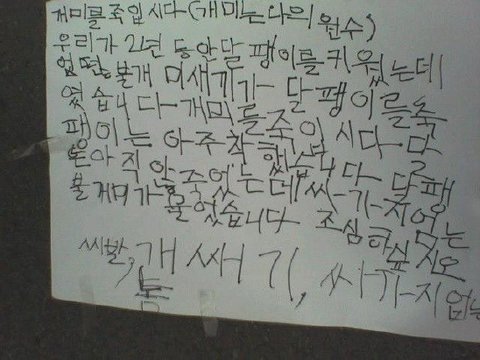 개미를 죽입시다(개미는 나의 원수)
우리가 2년 동안 달팽이를 키웠는데
엇떤, 불개미새기가 달팽이를 죽
였습니다- 개미를 죽이시다- 달
팽이는 아주 착했습니다 달팽
은 아직 안 죽었는데 싸-가-지 없는
불게미가 물었습니다 조심하싶시오
씨발, 개쌔기, 싸가지 없는
놈